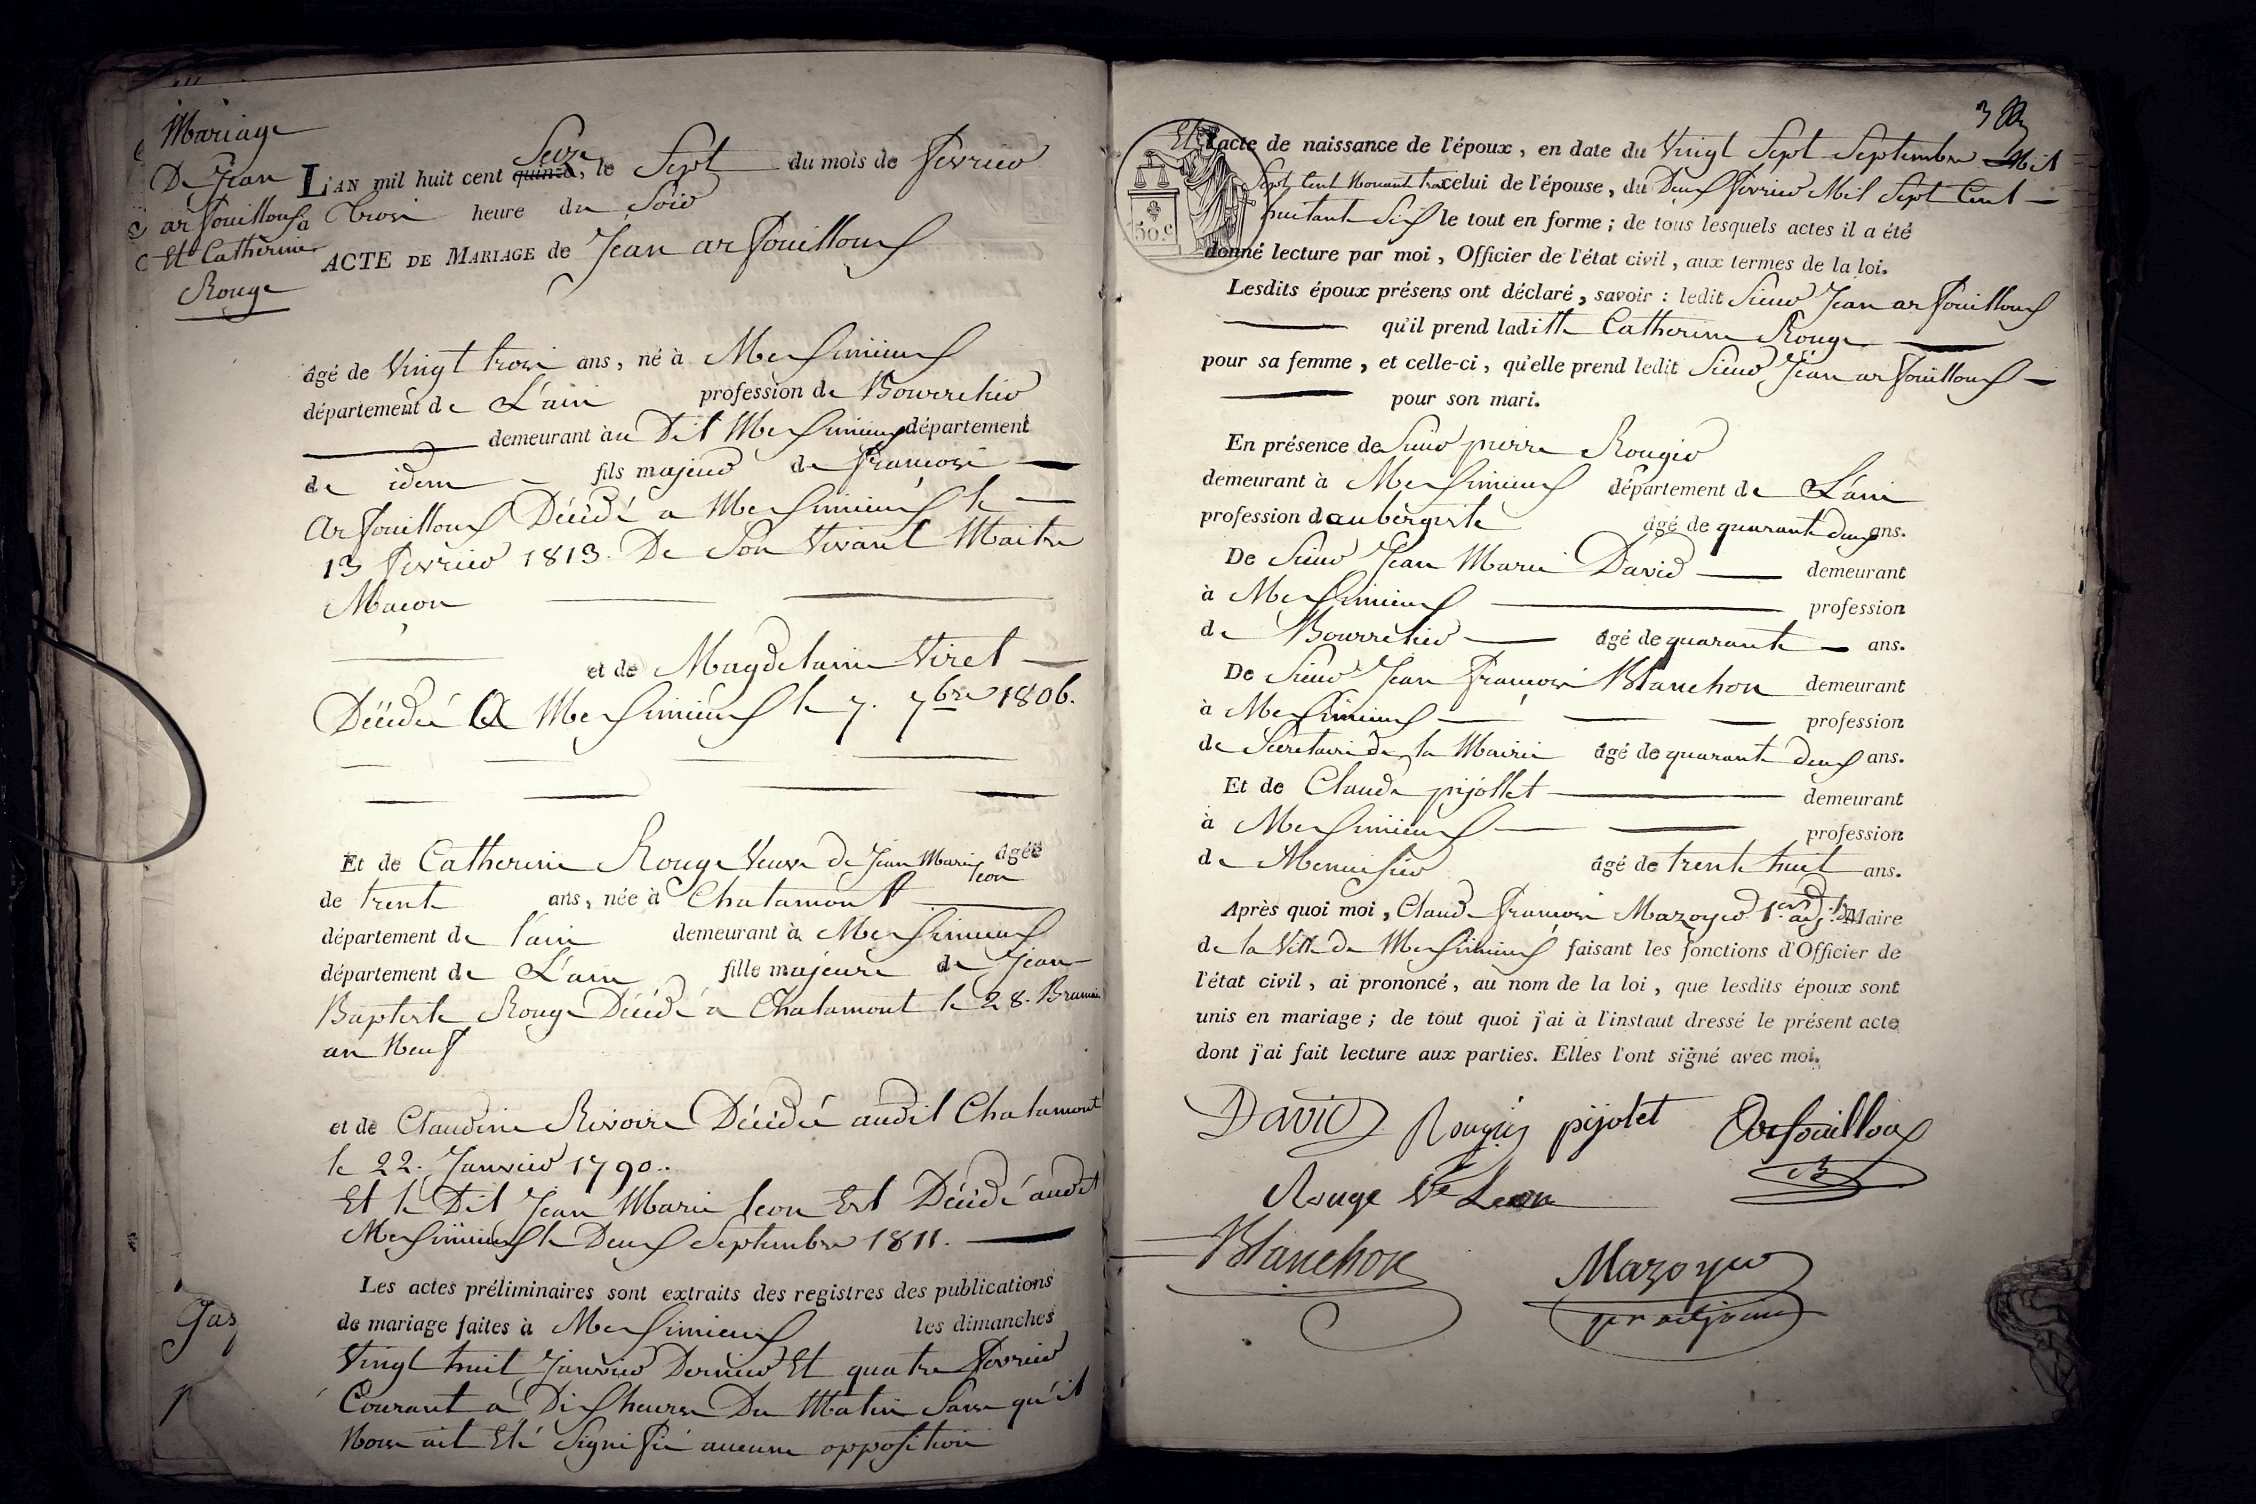 Mariage
De Jean
arsouilloux
Et Catherine
Rouge
L'AN mil huit cent quinze, Seize le Sept du mois de fevrier
a trois heure du Soir
ACTE DE MARIAGE de Jean arsouilloux
âgé de Vingt trois ans, né à Meximieux
département de L'ain profession de Bourrelier
demeurant àu Dit Meximieux département
de idem fils majeur de françois
arsouilloux Décédé a Meximieux le
13 fevrier 1813. De Son Vivant Maitre
Maçon
et de Magdelaine Viret
Décédée A Meximieux le 7. 7bre 1806.
Et de Catherine Rouge Veuve de Jean Marie leon âgée
de trente ans, née à Chalamont
département de l'ain demeurant à Meximieux
département de L'ain fille majeure de Jean
Baptiste Rouge Décédé a Chalamont le 28. Brumaire
an Neuf
et de Claudine Rivoire Décédée audit Chalamont
le 22. Janvier 1790..
Et le Dit Jean Marie leon Est Décédé audit
Meximieux le Deux Septembre 1811.
Les actes préliminaires sont extraits des registres des publications
de mariage faites à Meximieux les dimanches
Vingt huit Janvier Dernier Et quatre fevrier
Courant a Dix heures Du Matin Sans qu'il
Nous ait Eté Signifié aucune opposition
Et l'acte de naissance de l'époux, en date du Vingt Sept Septembre Mil
Sept Cent Nonante trois celui de l'épouse, du Deux fevrier Mil Sept Cent
huitante Six le tout en forme; de tous lesquels actes il a été
donné lecture par moi, Officier de l'état civil, aux termes de la loi.
50 c
Lesdits époux présens ont déclaré, savoir: ledit Sieur Jean arsouilloux
qu'il prend laditte Catherine Rouge
pour sa femme, et celle-ci, qu'elle prend ledit Sieur Jean arsouilloux
pour son mari.
En présence de Sieur pierre Rougier
demeurant à Meximieux département de L'ain
profession d aubergiste âgé de quarante deux ans.
De Sieur Jean Marie David demeurant
à Meximieux profession
de Bourrelier âgé de quarante ans.
De Sieur Jean François Blanchon demeurant
à Meximieux profession
de Secretaire de la Mairie âgé de quarante deux ans.
Et de Claude pijollet demeurant
à Meximieux profession
de Menuisier âgé de trente huit ans.
Après quoi moi, Claude françois Mazoyer 1er adj.t Maire
de la Ville de Meximieux faisant les fonctions d'Officier de
l'état civil, ai prononcé, au nom de la loi, que lesdits époux sont
unis en mariage; de tout quoi j'ai à l'instaut dressé le présent acte
dont j'ai fait lecture aux parties. Elles l'ont signé avec moi.
David Rougier pijolet Arsouilloux
Rouge Ve Leon
Blanchon Mazoyer
pr adjoint